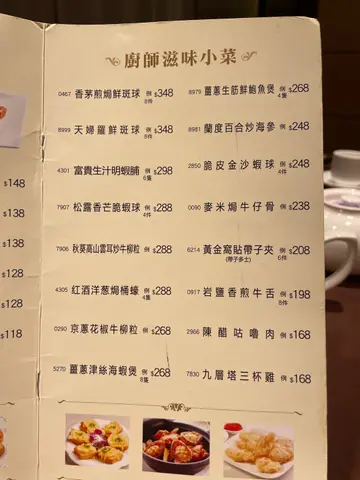 廚師滋味小菜
0467 香茅煎焗鮮斑球 例 $348
8件
8999 天婦羅鮮斑球 例 $348
8件
4301 富貴生汁明蝦脯 例 $298
6隻
7907 松露香芒脆蝦球 例 $288
4件
7906 秋葵高山雲耳炒牛柳粒 例 $288
4305 紅酒洋葱焗桶蠔 例 $288
4隻
0290 京蔥花椒牛柳粒 例 $268
5270 薑蔥津絲海蝦煲 例 $268
8隻
8979 薑蔥生筋鮮鮑魚煲 例 $268
4隻
8981 蘭度百合炒海參 例 $248
2850 脆皮金沙蝦球 例 $248
4件
0090 麥米焗牛仔骨 例 $238
6214 黃金窩貼帶子夾 例 $208
(帶子多士) 6件
0917 岩鹽香煎牛舌 例 $198
8件
2966 陳醋咕嚕肉 例 $168
7830 九層塔三杯雞 例 $168
$148
$138
$138
$128
$128
$118